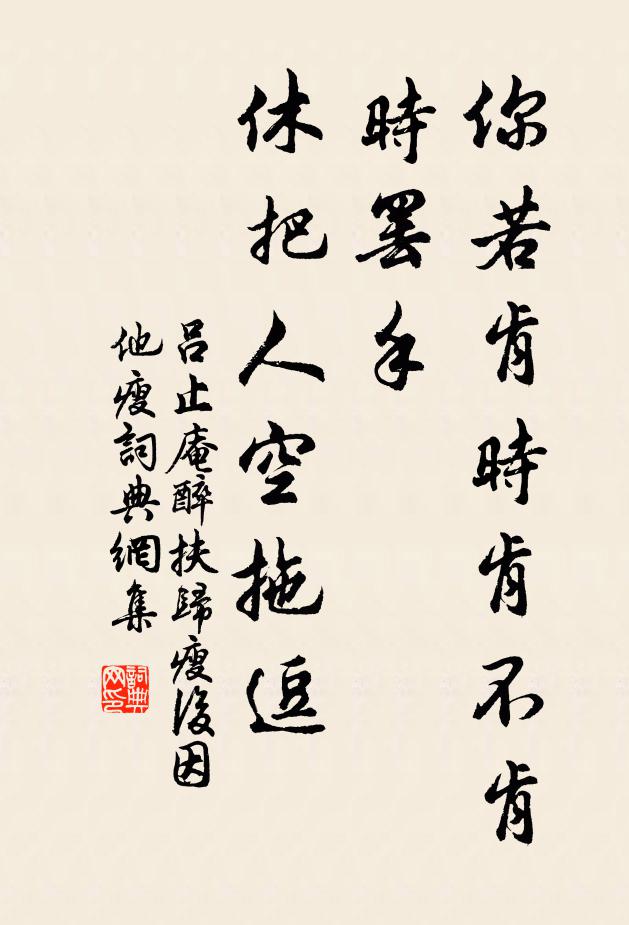 你若肯時肯不肯
時罷手
休把人空拖逗
呂止庵醉扶歸瘦後因
他瘦詞典網集
詞典網印